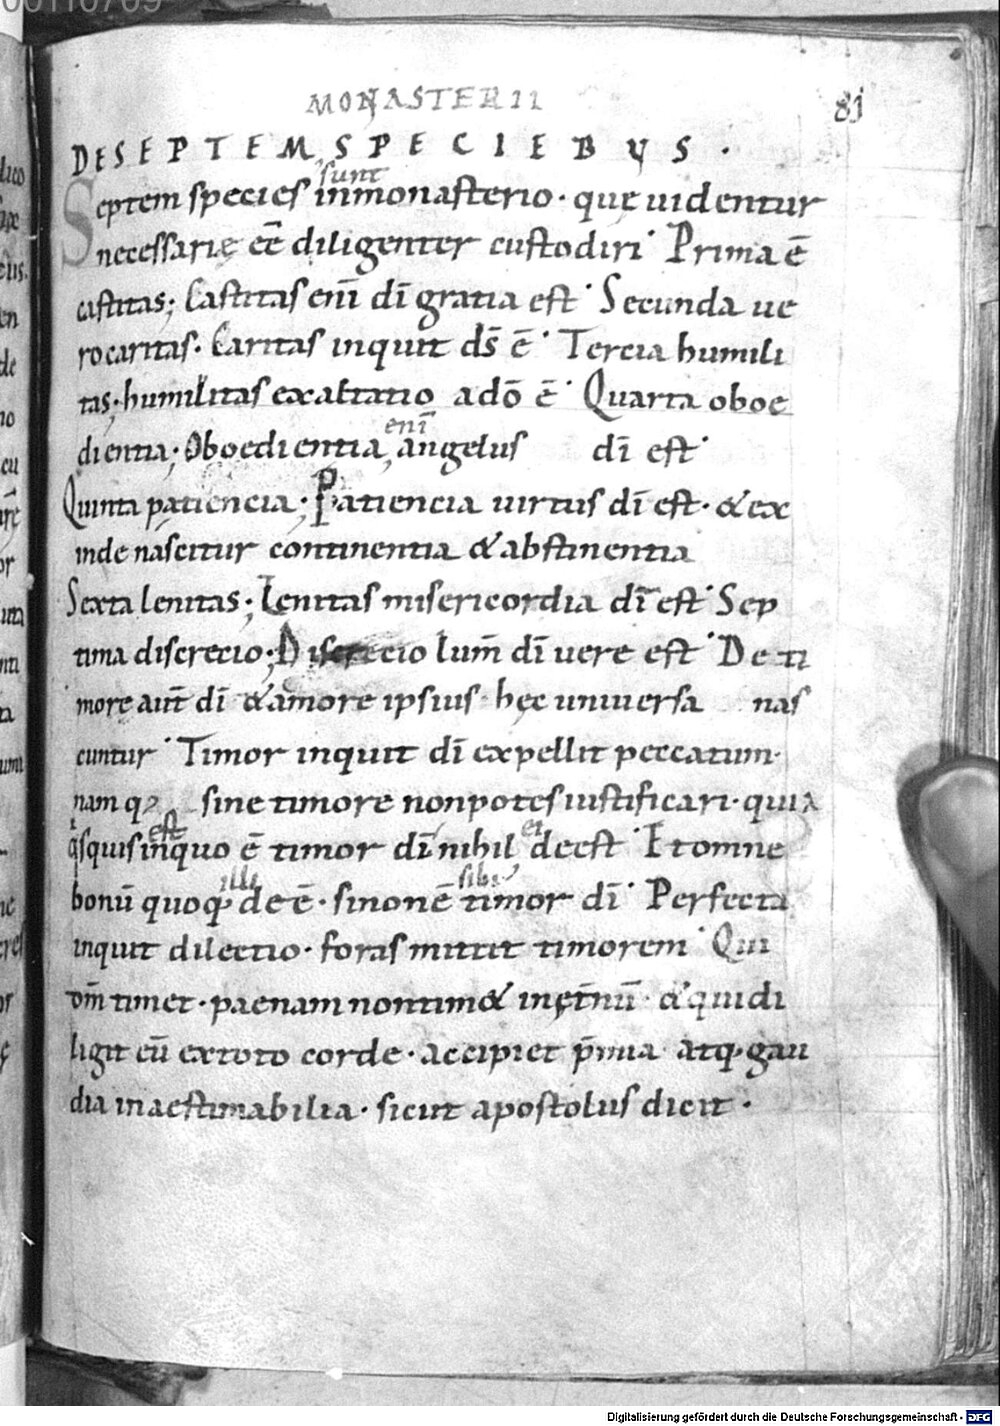 00110709
MONASTERII
81
DE SEPTEM SPECIEBUS .
sunt
Septem species inmonasterio · que uidentur
necessarię eē diligenter custodiri · Prima ē
castitas; Castitas enī dī gratia est · Secunda ue
rocaritas · Caritas inquit ds̄ ē · Tercia humili
tas; humilitas exaltatio adō ē · Quarta oboe
enī
dientia; Oboedientia, angelus dī est ·
Quinta patiencia; Patiencia uirtus dī est · & ex
inde nascitur continentia & abstinentia
Sexta lenitas; Lenitas misericordia dī est · Sep
tima discrecio; Discrecio lum̄ dī uere est · De ti
more aut̄ dī & amore ipsius hęc uniuersa nas
cuntur · Timor inquit dī expellit peccatum ·
nam q sine timore nonpotes iustificari · quia
est ei
qisquis inquo ē timor dī nihil deest · Et omne
illi sibi
bonū quoq; de ē · sinonē timor dī · Perfecta
inquit dilectio · foras mittit timorem · Qui
dn̄m timet · paenam nontim& inęt̄nū · & quidi
ligit eū extoto corde · accipiet p̄mia atq; gau
dia inaestimabilia · sicut apostolus dicit ·
Digitalisierung gefördert durch die Deutsche Forschungsgemeinschaft - DFG